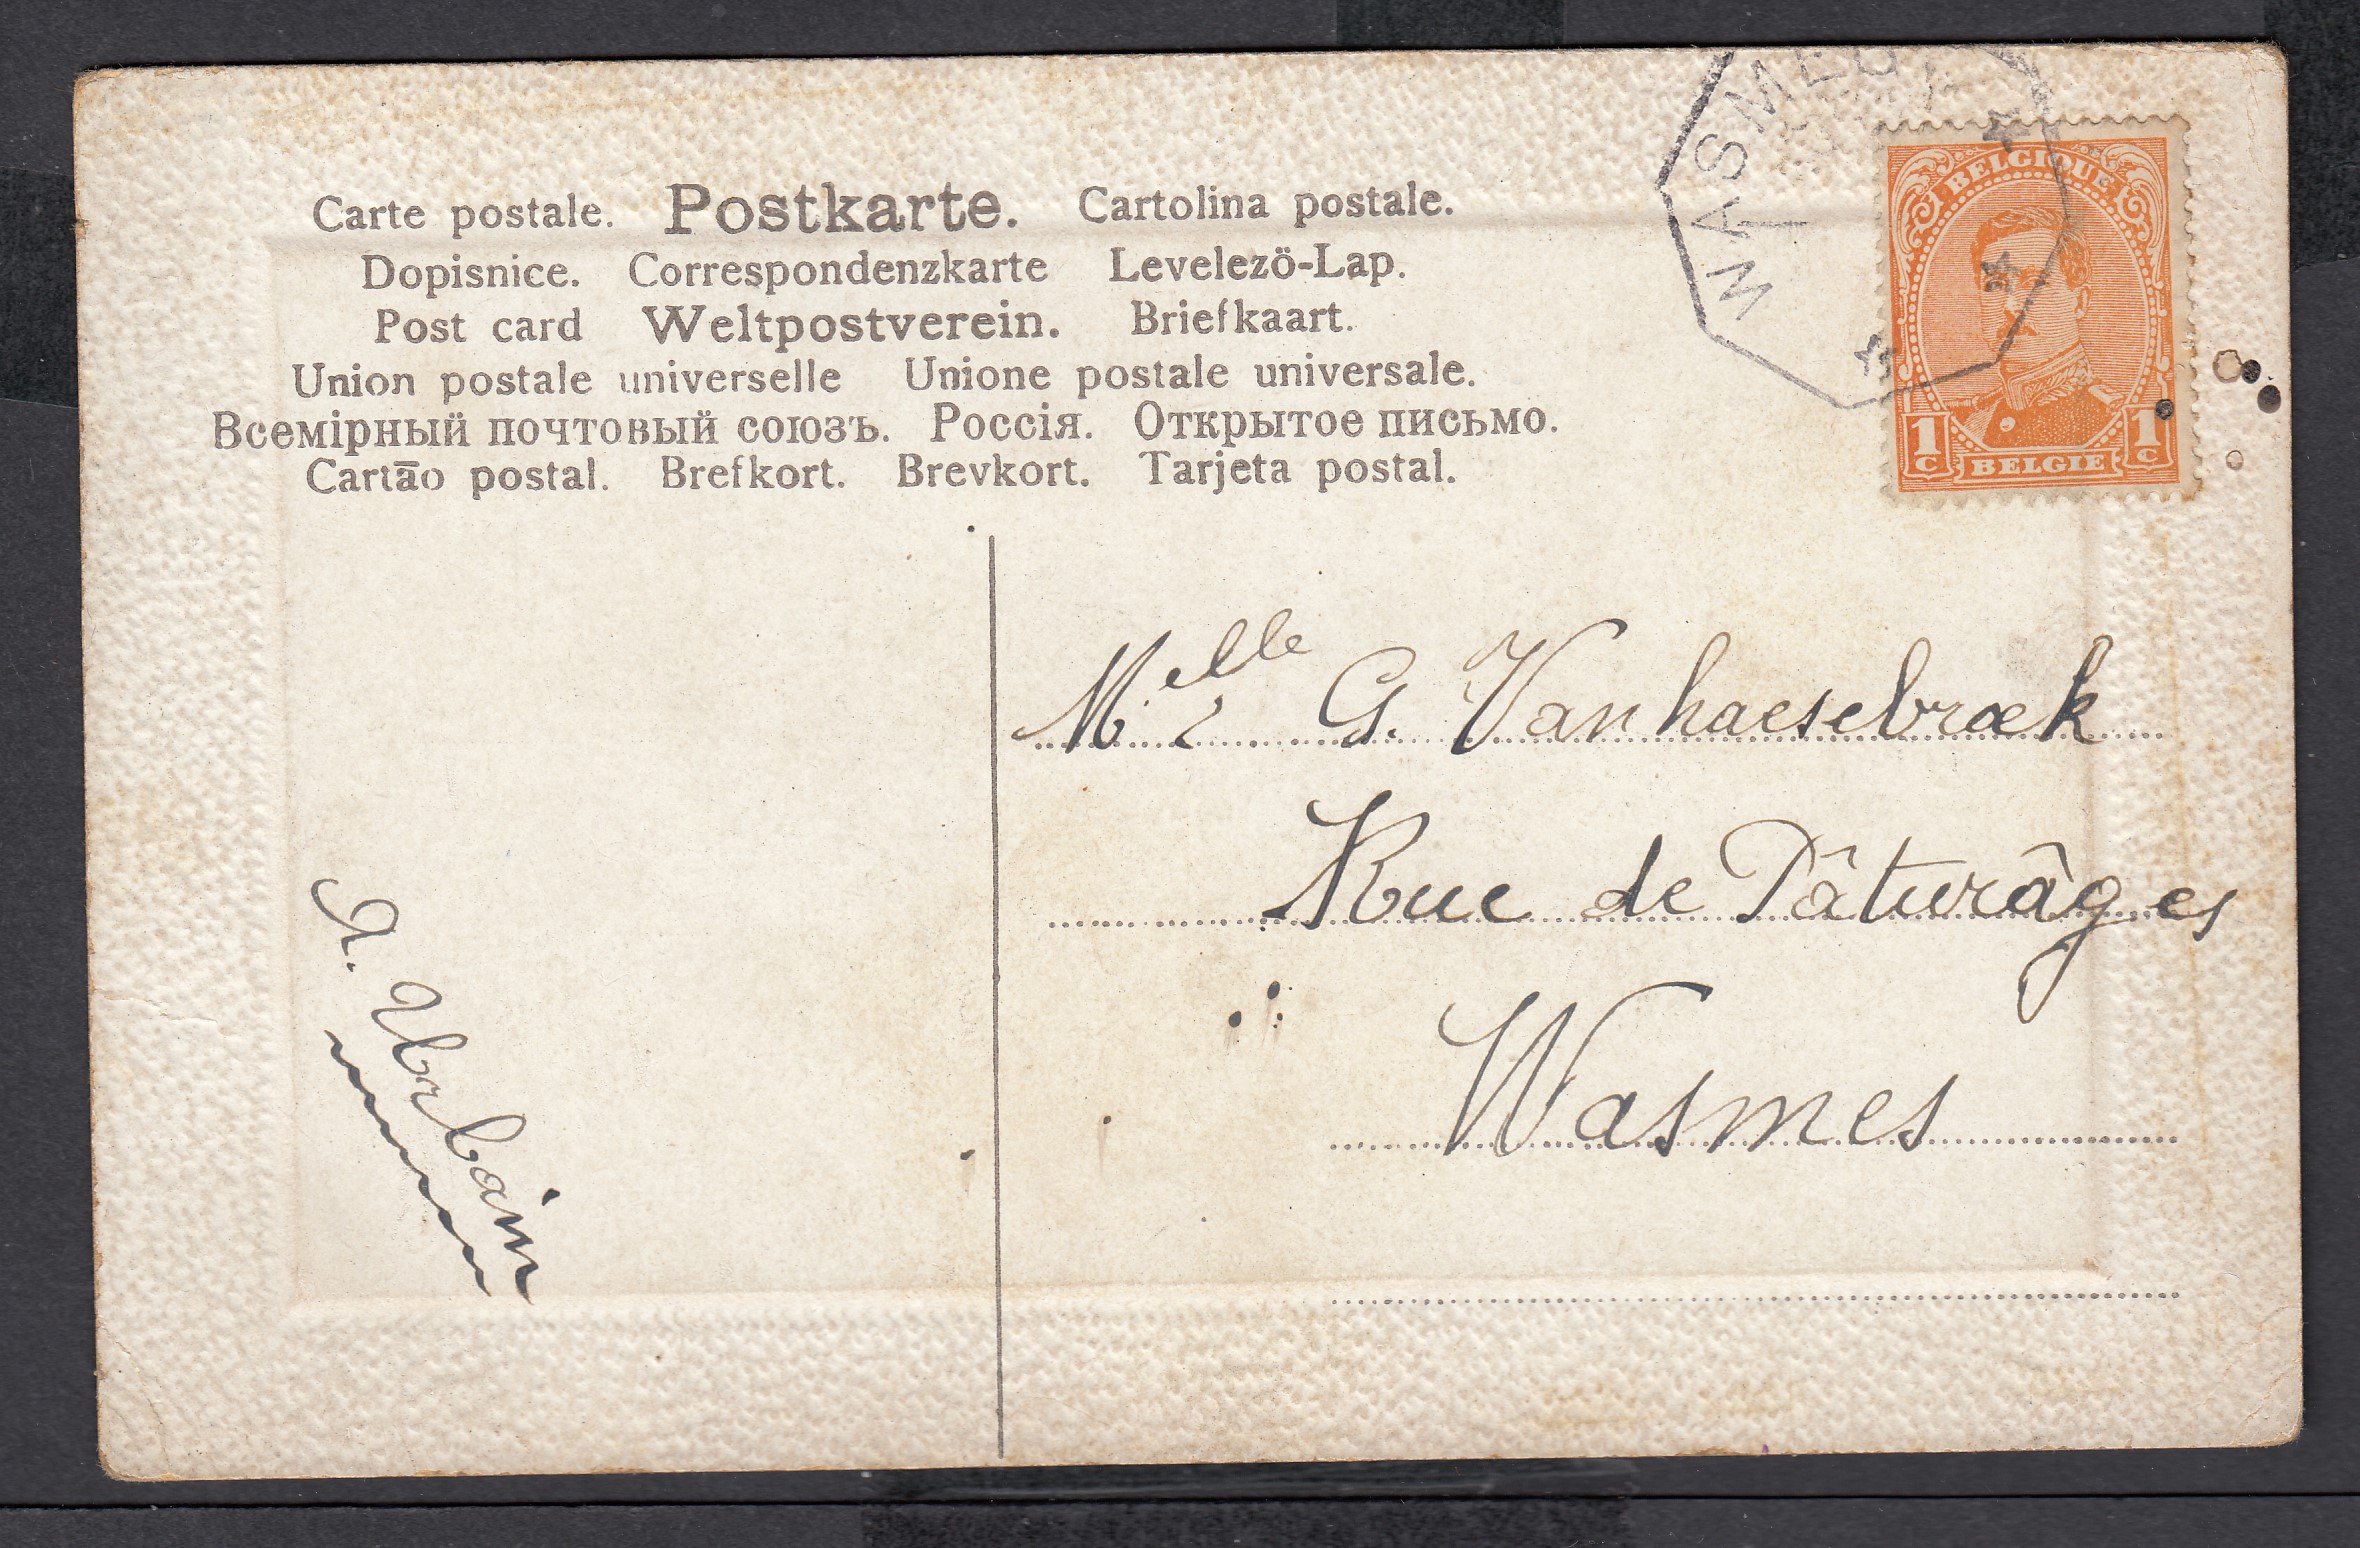 WASMES
BELGIQUE
1 C BELGIE 1 C
Carte postale. Postkarte. Cartolina postale.
Dopisnice. Correspondenzkarte Levelezö-Lap.
Post card Weltpostverein. Briefkaart.
Union postale universelle Unione postale universale.
Всемірный почтовый союзъ. Россія. Открытое письмо.
Cartāo postal. Brefkort. Brevkort. Tarjeta postal.
Melle G. Vanhaesebroek
Rue de Pâturâges
Wasmes
A. Urbain